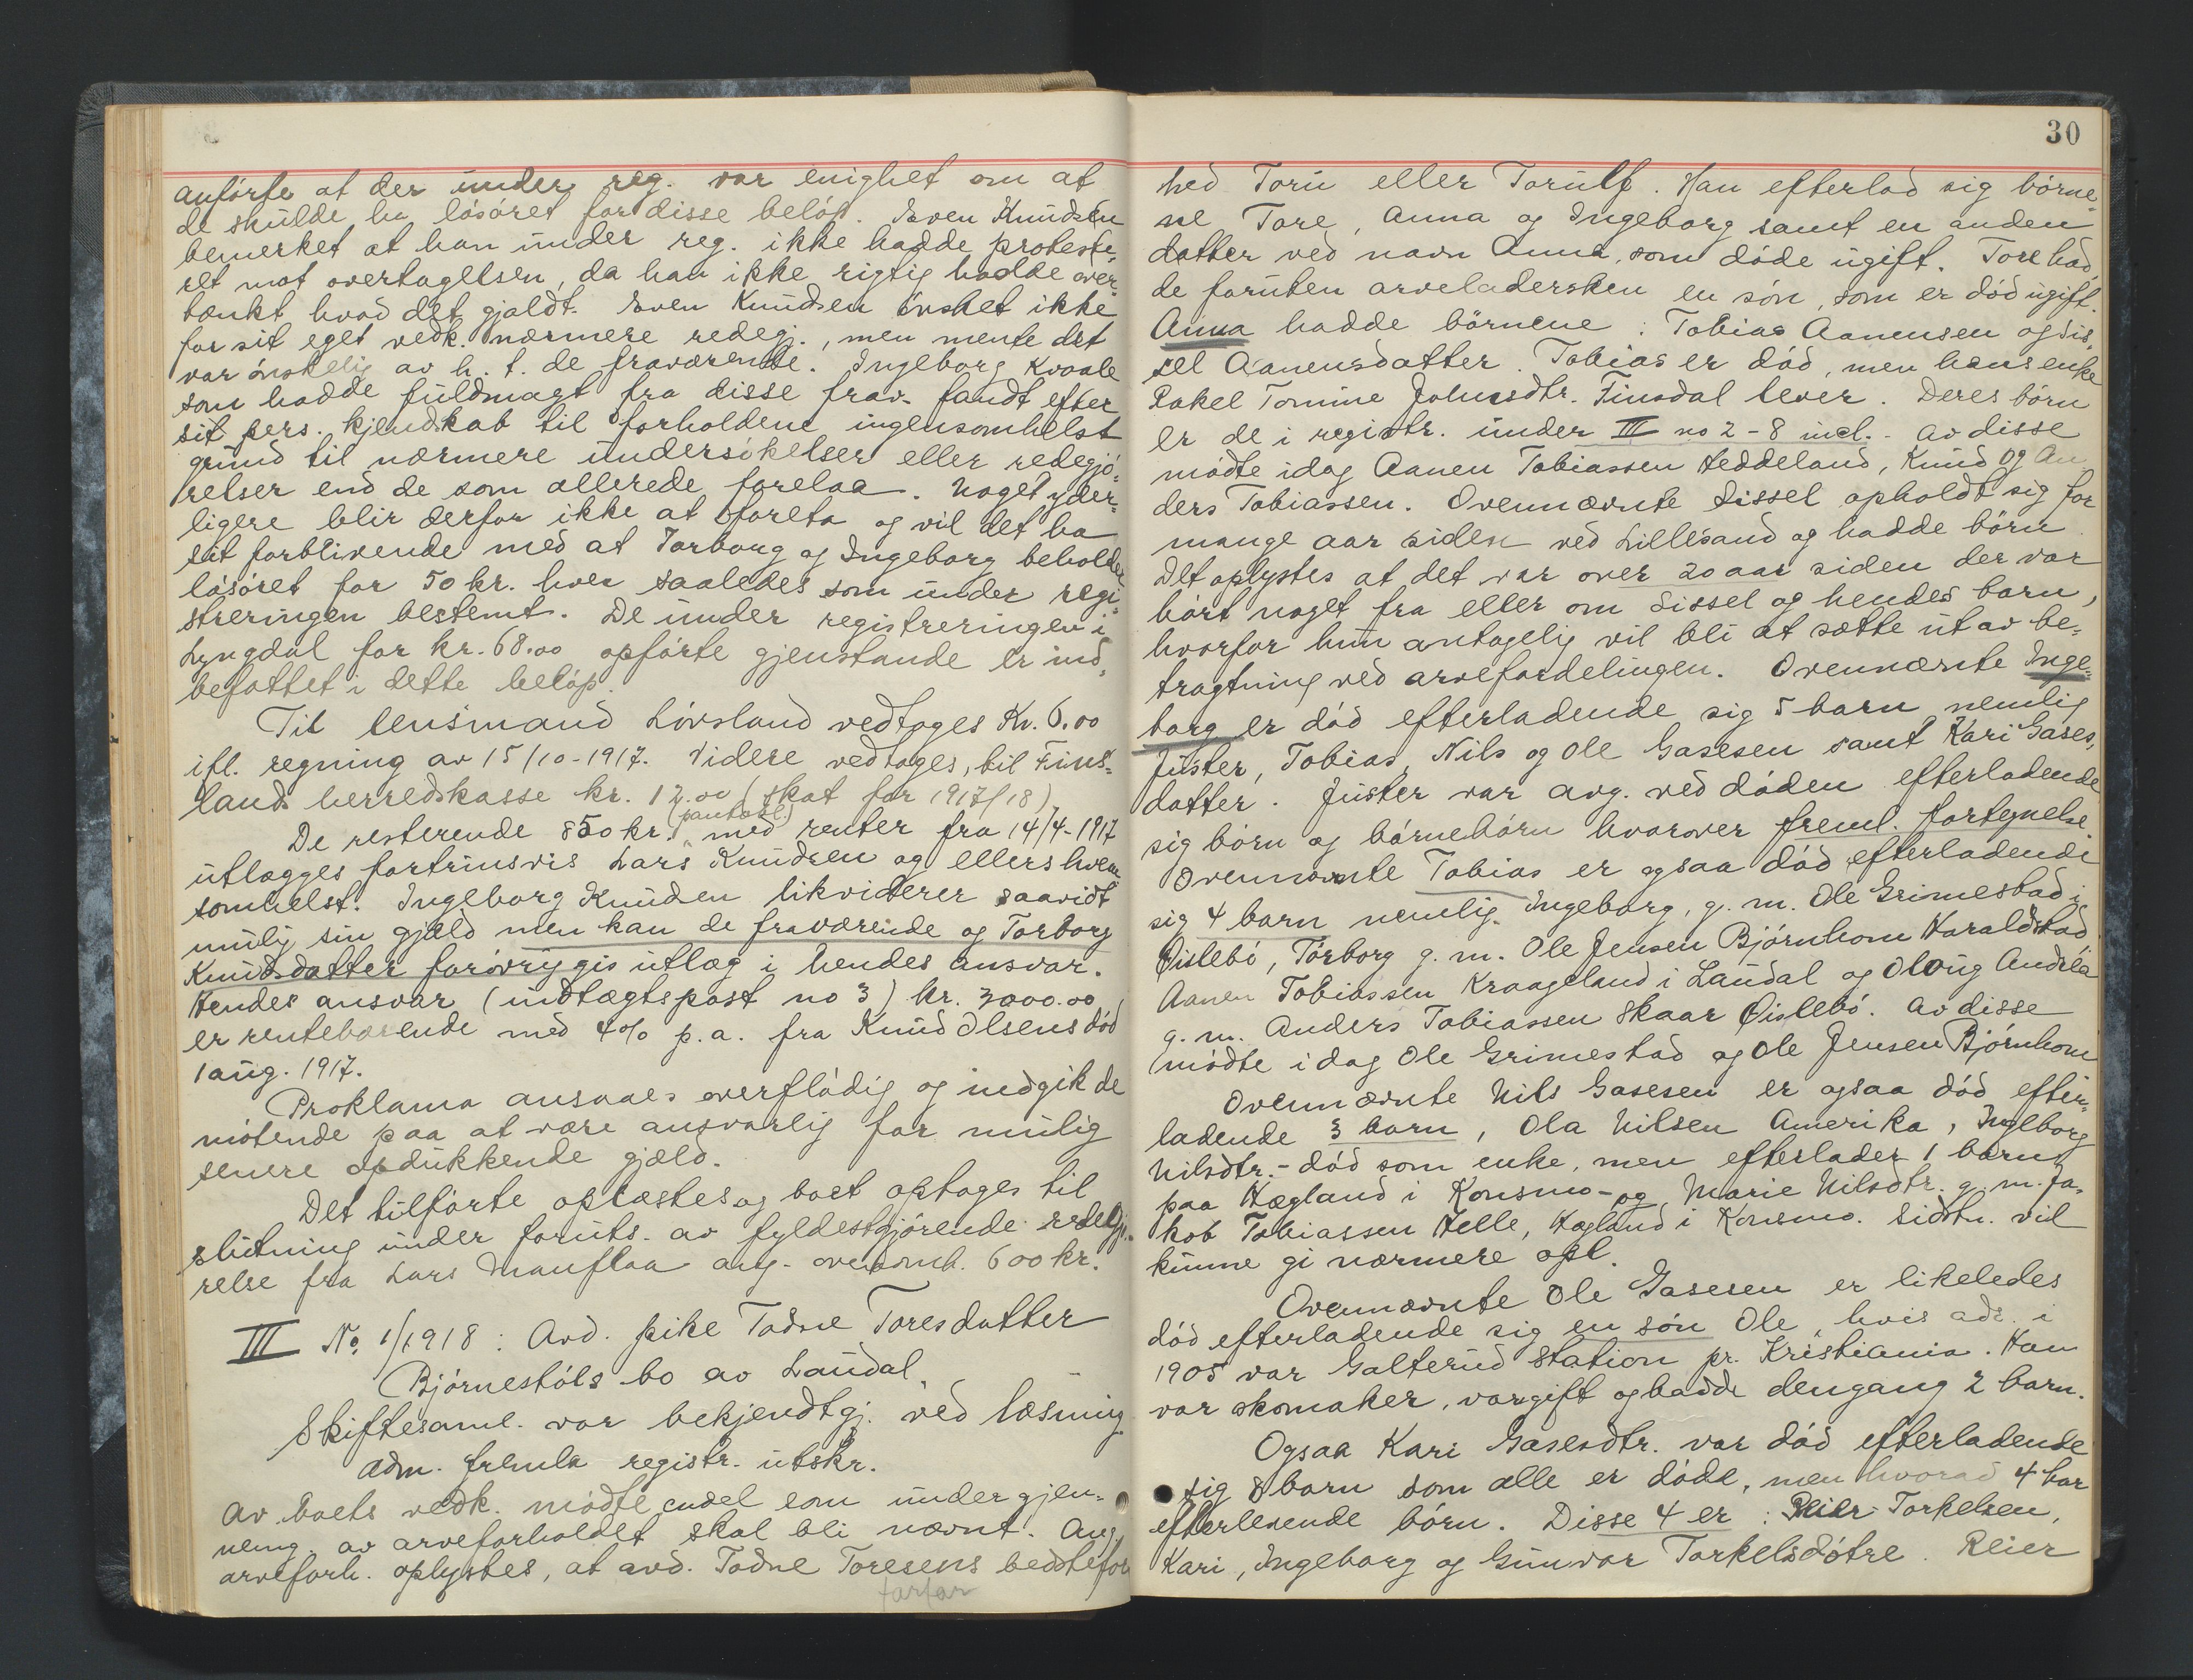 anförte at der under reg. var enighet om at
de skulde ha lösöret for disse belöp. Sven Knudsen
bemerket at han under reg. ikke hadde proteste-
ret mot overtagelsen, da han ikke rigtig hadde over-
tænkt hvad det gjaldt. Sven Knudsen önsket ikke
for sit eget vedk. nærmere redegj., men mente det
var önskelig av h. t. de fraværende. Ingeborg Kvaale
som hadde fuldmagt fra disse frav. fandt efter
sit pers. kjendskab til forholdene ingensomhelst
grund til nærmere undersökelser eller redegjö-
relser end de som allerede forelaa. Noget yder-
ligere blir derfor ikke at foreta og vil det ha
sit forblivende med at Torborg og Ingeborg beholder
lösöret for 50 kr. hver saaledes som under regi-
streringen bestemt. De under registreringen i
Lyngdal for kr. 68.00 opförte gjenstande er ind-
befattet i dette belöp.
Til lensmand Lövsland vedtages Kr. 6.00
ifl. regning av 15/10-1917. Videre vedtages, til Fins-
lands herredskasse kr. 12.00 (skat for 1917/18)
De resterende 850 kr. (pantobl.) med renter fra 14/4-1917
utlægges fortrinsvis Lars Knudsen og ellers hvem
somhelst. Ingeborg Knudsen likviderer saavidt
mulig sin gjæld men kan de fraværende og Torborg
Knudsdatter forövrig gis utlæg i hendes ansvar.
Hendes ansvar (indtægtspost no 3) kr. 3000.00
er rentebærende med 4% p.a. fra Knud Olsens död
1 aug. 1917.
Proklama ansaaes overflödig og indgik de
mötende paa at være ansvarlig for mulig
senere opdukkende gjæld.
Det tilförte oplæstes og boet optages til
slutning under foruts. av fyldestgjörende redegj-
relse fra Lars Manflaa ang. ovenomh. 600 kr.
III No. 1/1918: Avd. pike Todne Toresdatter
Björnestöls bo av Laudal.
Skiftesaml. var bekjendtgj. ved læsning
Adm. fremla registr. utskr.
Av boets vedk. mödte endel som under gjen-
nemg. av arveforholdet skal bli nævnt. Ang.
arveforh. oplystes, at avd. Todne Toresens bedstefor
farfar
30
hed Toru eller Torulf. Han efterlod sig börne-
ne Tore, Anna og Ingeborg samt en anden
datter ved navn Anna, som döde ugift. Tore had-
de foruten arveladersken en sön, som er död ugift.
Anna hadde börnene: Tobias Aanensen og Sis-
sel Aanensdatter. Tobias er död, men hans enke
Rakel Tomine Johnsdtr. Finsdal lever. Deres börn
er de i registr. under III no 2-8 incl. Av disse
mödte idag Aanen Tobiassen Heddeland, Knud og An
ders Tobiassen. Ovennævnte Sissel opholdt sig for
mange aar siden ved Lillesand og hadde börn.
Det oplystes at det var over 20 aar siden der var
hört noget fra eller om Sissel og hendes barn,
hvorfor hun antagelig vil bli at sætte ut av be-
tragtning ved arvefordelingen. Ovennævnte Inge-
borg er död efterladende sig 5 barn nemlig
Juster, Tobias, Nils og Ole Gasesen samt Kari Gases-
datter. Juster var avg. ved döden efterladende
sig börn og börnebörn hvorover freml. fortegnelse.
Ovennævnte Tobias er ogsaa död efterladende
sig 4 barn nemlig Ingeborg, g. m. Ole Grimestad i
Öislebö, Torborg g. m. Ole Jensen Björnhom Haraldstad
Aanen Tobiassen Kraageland i Laudal og Oloug Andrea
g. m. Anders Tobiassen Skaar Öislebö. Av disse
mödte i dag Ole Grimestad og Ole Jensen Björnhom
Ovennævnte Nils Gasesen er ogsaa död efter-
ladende 3 barn, Ola Nilsen Amerika, Ingeborg
Nilsdtr. - död som enke, men efterlader 1 barn
paa Hægland i Konsmo - og Marie Nilsdtr. g. m. Ja-
kob Tobiassen Helle, Hægland i Konsmo. Sidstn. vil
kunne gi nærmere opl.
Ovennævnte Ole Gasesen er likeledes
död efterladende sig en sön Ole, hvis adr. i
1905 var Galterud Station pr. Kristiania. Han
var skomaker, var gift og hadde dengang 2 barn.
Ogsaa Kari Gasesdtr. var död efterladende
sig 8 barn som alle er döde, men hvorav 4 har
efterlevende börn. Disse 4 er: Reier Torkelsen,
Kari, Ingeborg og Gunvor Torkelsdötre. Reier